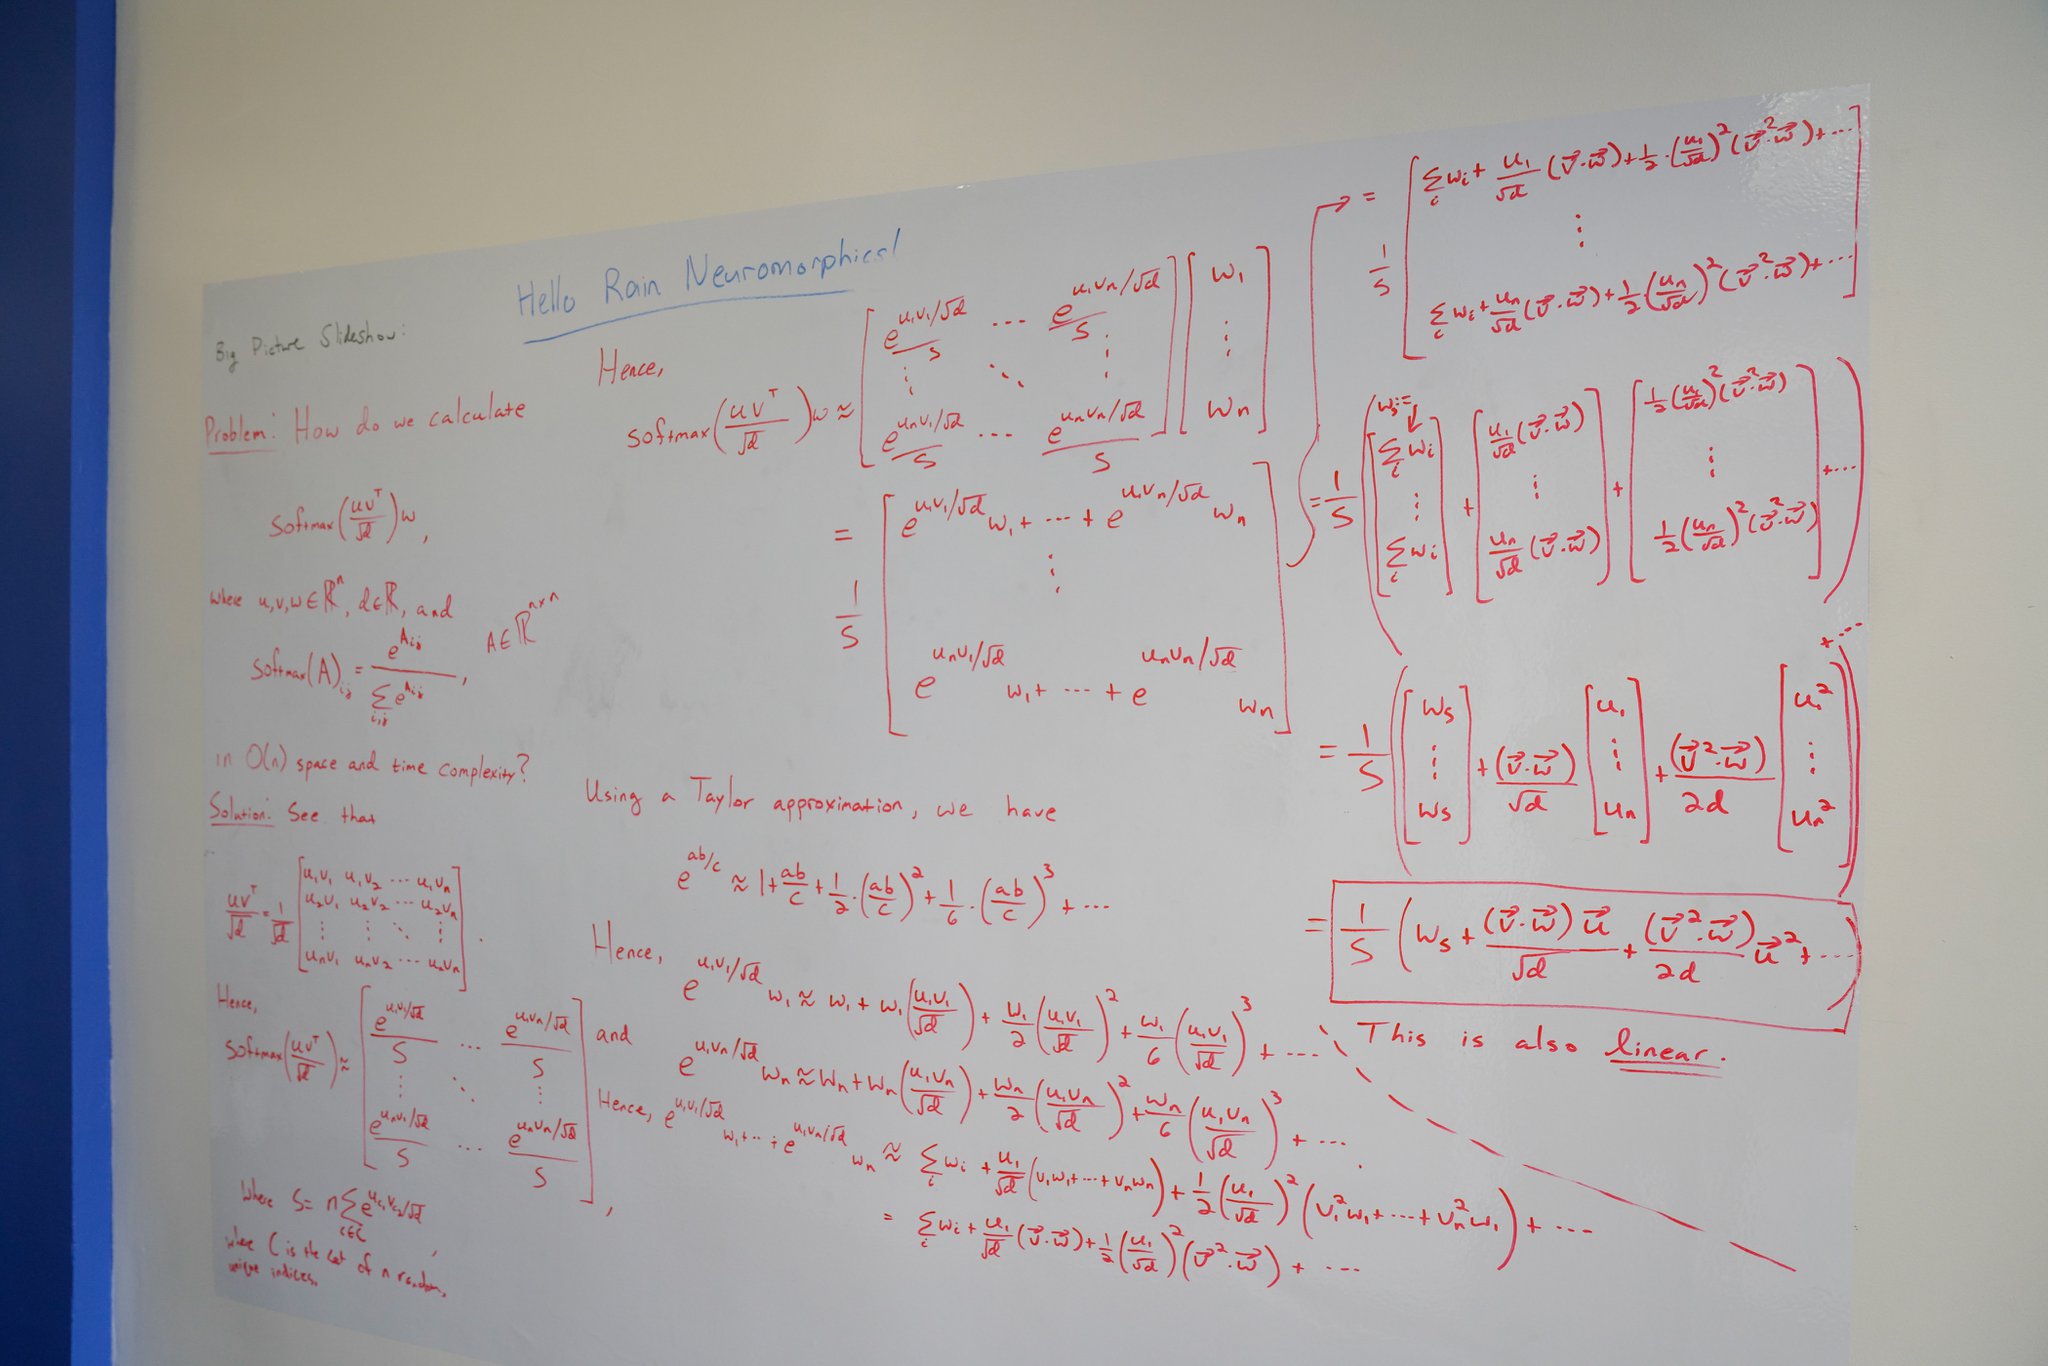 Hello Rain Neuromorphics!
Big Picture Slideshow:
Problem: How do we calculate
softmax(uvᵀ/√d)w,
where u,v,w∈ℝⁿ, d∈ℝ, and
softmax(A)ᵢⱼ = e^(Aᵢⱼ) / Σᵢ,ⱼ e^(Aᵢⱼ), A∈ℝⁿˣⁿ
in O(n) space and time complexity?
Solution: See that
uvᵀ/√d = 1/√d [u₁v₁ u₁v₂ ⋯ u₁vₙ
u₂v₁ u₂v₂ ⋯ u₂vₙ
⋮ ⋮ ⋱ ⋮
uₙv₁ uₙv₂ ⋯ uₙvₙ].
Hence,
softmax(uvᵀ/√d) ≈ [e^(u₁v₁/√d)/S ⋯ e^(u₁vₙ/√d)/S
⋮ ⋱ ⋮
e^(uₙv₁/√d)/S ⋯ e^(uₙvₙ/√d)/S],
where S = n Σ_(c∈C) e^(u_c₁v_c₂/√d),
where C is the set of n random,
unique indices.
Hence,
softmax(uvᵀ/√d)w ≈ [e^(u₁v₁/√d)/S ⋯ e^(u₁vₙ/√d)/S
⋮ ⋱ ⋮
e^(uₙv₁/√d)/S ⋯ e^(uₙvₙ/√d)/S] [w₁
⋮
wₙ]
= 1/S [e^(u₁v₁/√d)w₁ + ⋯ + e^(u₁vₙ/√d)wₙ
⋮
e^(uₙv₁/√d)w₁ + ⋯ + e^(uₙvₙ/√d)wₙ]
Using a Taylor approximation, we have
e^(ab/c) ≈ 1 + ab/c + 1/2·(ab/c)² + 1/6·(ab/c)³ + ⋯
Hence,
e^(u₁v₁/√d)w₁ ≈ w₁ + w₁(u₁v₁/√d) + w₁/2(u₁v₁/√d)² + w₁/6(u₁v₁/√d)³ + ⋯
and
e^(u₁vₙ/√d)wₙ ≈ wₙ + wₙ(u₁vₙ/√d) + wₙ/2(u₁vₙ/√d)² + wₙ/6(u₁vₙ/√d)³ + ⋯.
Hence, e^(u₁v₁/√d)w₁ + ⋯ + e^(u₁vₙ/√d)wₙ ≈ Σᵢ wᵢ + u₁/√d(v₁w₁ + ⋯ + vₙwₙ) + 1/2(u₁/√d)²(v₁²w₁ + ⋯ + vₙ²w₁) + ⋯
= Σᵢ wᵢ + u₁/√d(v⃗·w⃗) + 1/2(u₁/√d)²(v⃗²·w⃗) + ⋯
= 1/S [Σᵢ wᵢ + u₁/√d(v⃗·w⃗) + 1/2·(u₁/√d)²(v⃗²·w⃗) + ⋯
⋮
Σᵢ wᵢ + uₙ/√d(v⃗·w⃗) + 1/2(uₙ/√d)²(v⃗²·w⃗) + ⋯]
wₛ:=
↓
= 1/S ([Σᵢ wᵢ
⋮
Σᵢ wᵢ] + [u₁/√d(v⃗·w⃗)
⋮
uₙ/√d(v⃗·w⃗)] + [1/2(u₁/√d)²(v⃗²·w⃗)
⋮
1/2(uₙ/√d)²(v⃗²·w⃗)] + ⋯)
= 1/S ([wₛ
⋮
wₛ] + (v⃗·w⃗)/√d [u₁
⋮
uₙ] + (v⃗²·w⃗)/2d [u₁²
⋮
uₙ²] + ⋯)
= 1/S (wₛ + (v⃗·w⃗)u⃗/√d + (v⃗²·w⃗)/2d u⃗² + ⋯)
This is also linear.